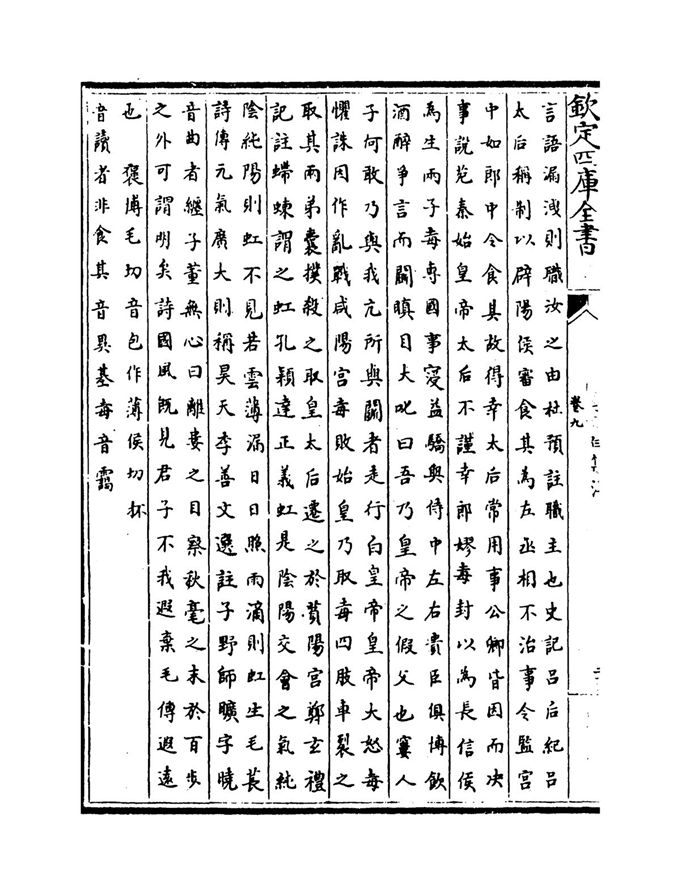 欽定四庫全書
卷九
言語漏洩則職汝之由杜預註職主也史記呂后紀呂
太后稱制以辟陽侯審食其為左丞相不治事令監宮
中如郎中令食其故得幸太后常用事公卿皆因而決
事說苑秦始皇帝太后不謹幸郎嫪毐封以為長信侯
為生兩子毐專國事寖益驕與侍中左右貴臣俱博飲
酒醉爭言而鬭瞋目大叱曰吾乃皇帝之假父也窶人
子何敢乃與我亢所與鬭者走行白皇帝皇帝大怒毐
懼誅因作亂戰咸陽宮毐敗始皇乃取毐四肢車裂之
取其兩弟囊撲殺之取皇太后遷之於萯陽宮鄭玄禮
記註螮蝀謂之虹孔穎達正義虹是陰陽交會之氣純
陰純陽則虹不見若雲薄漏日日照雨滴則虹生毛萇
詩傳元氣廣大則稱昊天李善文選註子野師曠字曉
音曲者纏子董無心曰離婁之目察秋毫之末於百步
之外可謂明矣詩國風既見君子不我遐棄毛傳遐遠
也　褒博毛切音包作薄侯切杯
音讀者非食其音異基毐音靄